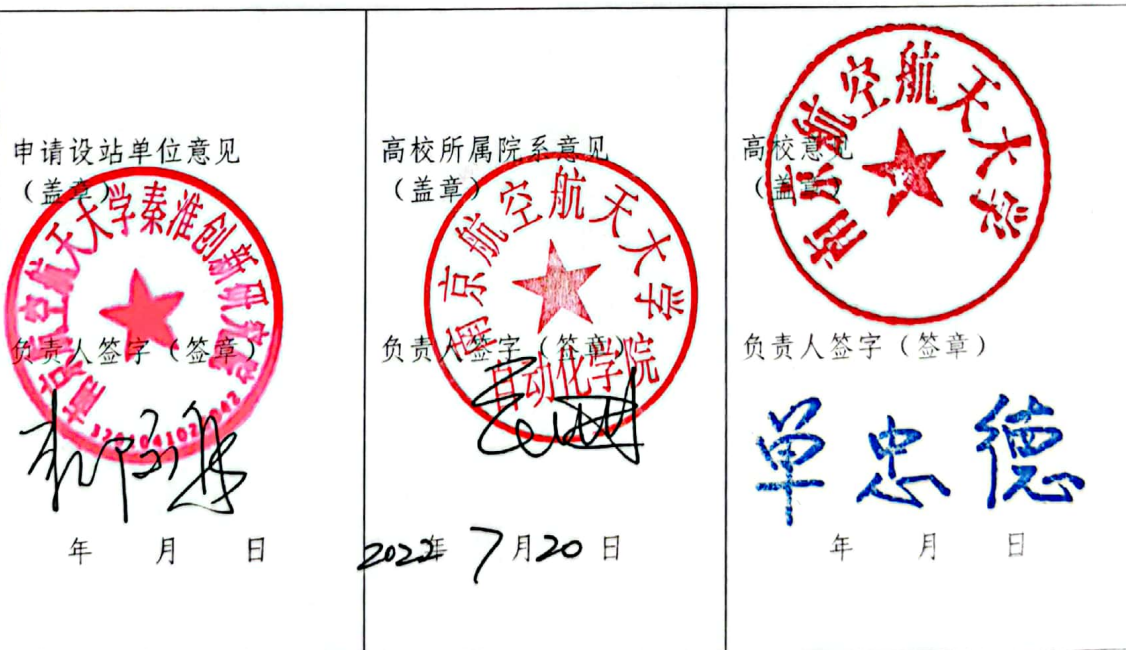 申请设站单位意见
（盖章）
南京航空航天大学秦淮创新研究院
负责人签字（签章）
年 月 日
高校所属院系意见
（盖章）
南京航空航天大学
自动化学院
负责人签字（签章）
2022年 7月20日
高校意见
（盖章）
南京航空航天大学
负责人签字（签章）
单忠德
年 月 日